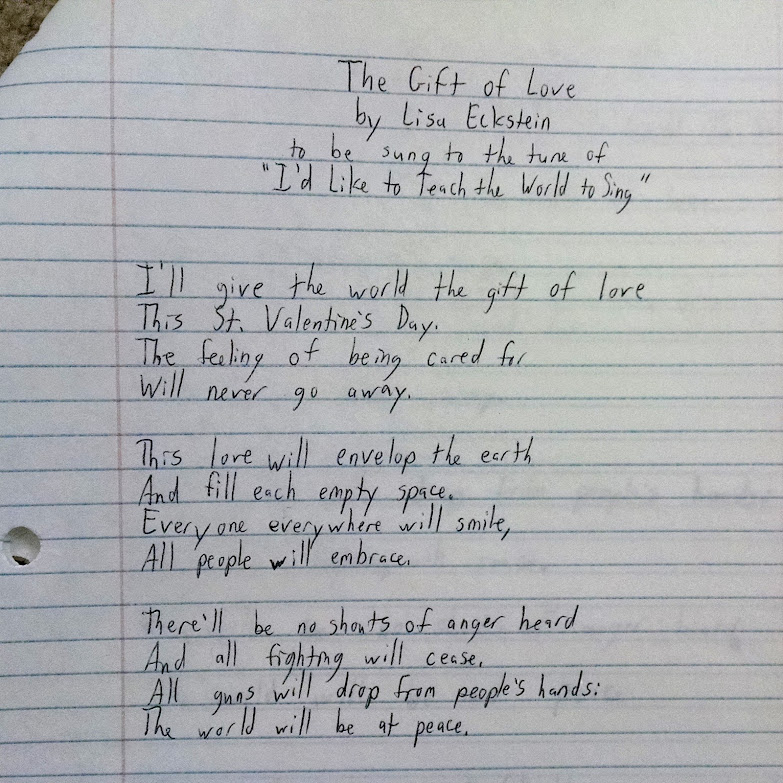 The Gift of Love
by Lisa Eckstein
to be sung to the tune of
"I'd Like to Teach the World to Sing"
I'll give the world the gift of love
This St. Valentine's Day.
The feeling of being cared for
Will never go away.
This love will envelop the earth
And fill each empty space.
Everyone everywhere will smile,
All people will embrace.
There'll be no shouts of anger heard
And all fighting will cease.
All guns will drop from people's hands:
The world will be at peace.